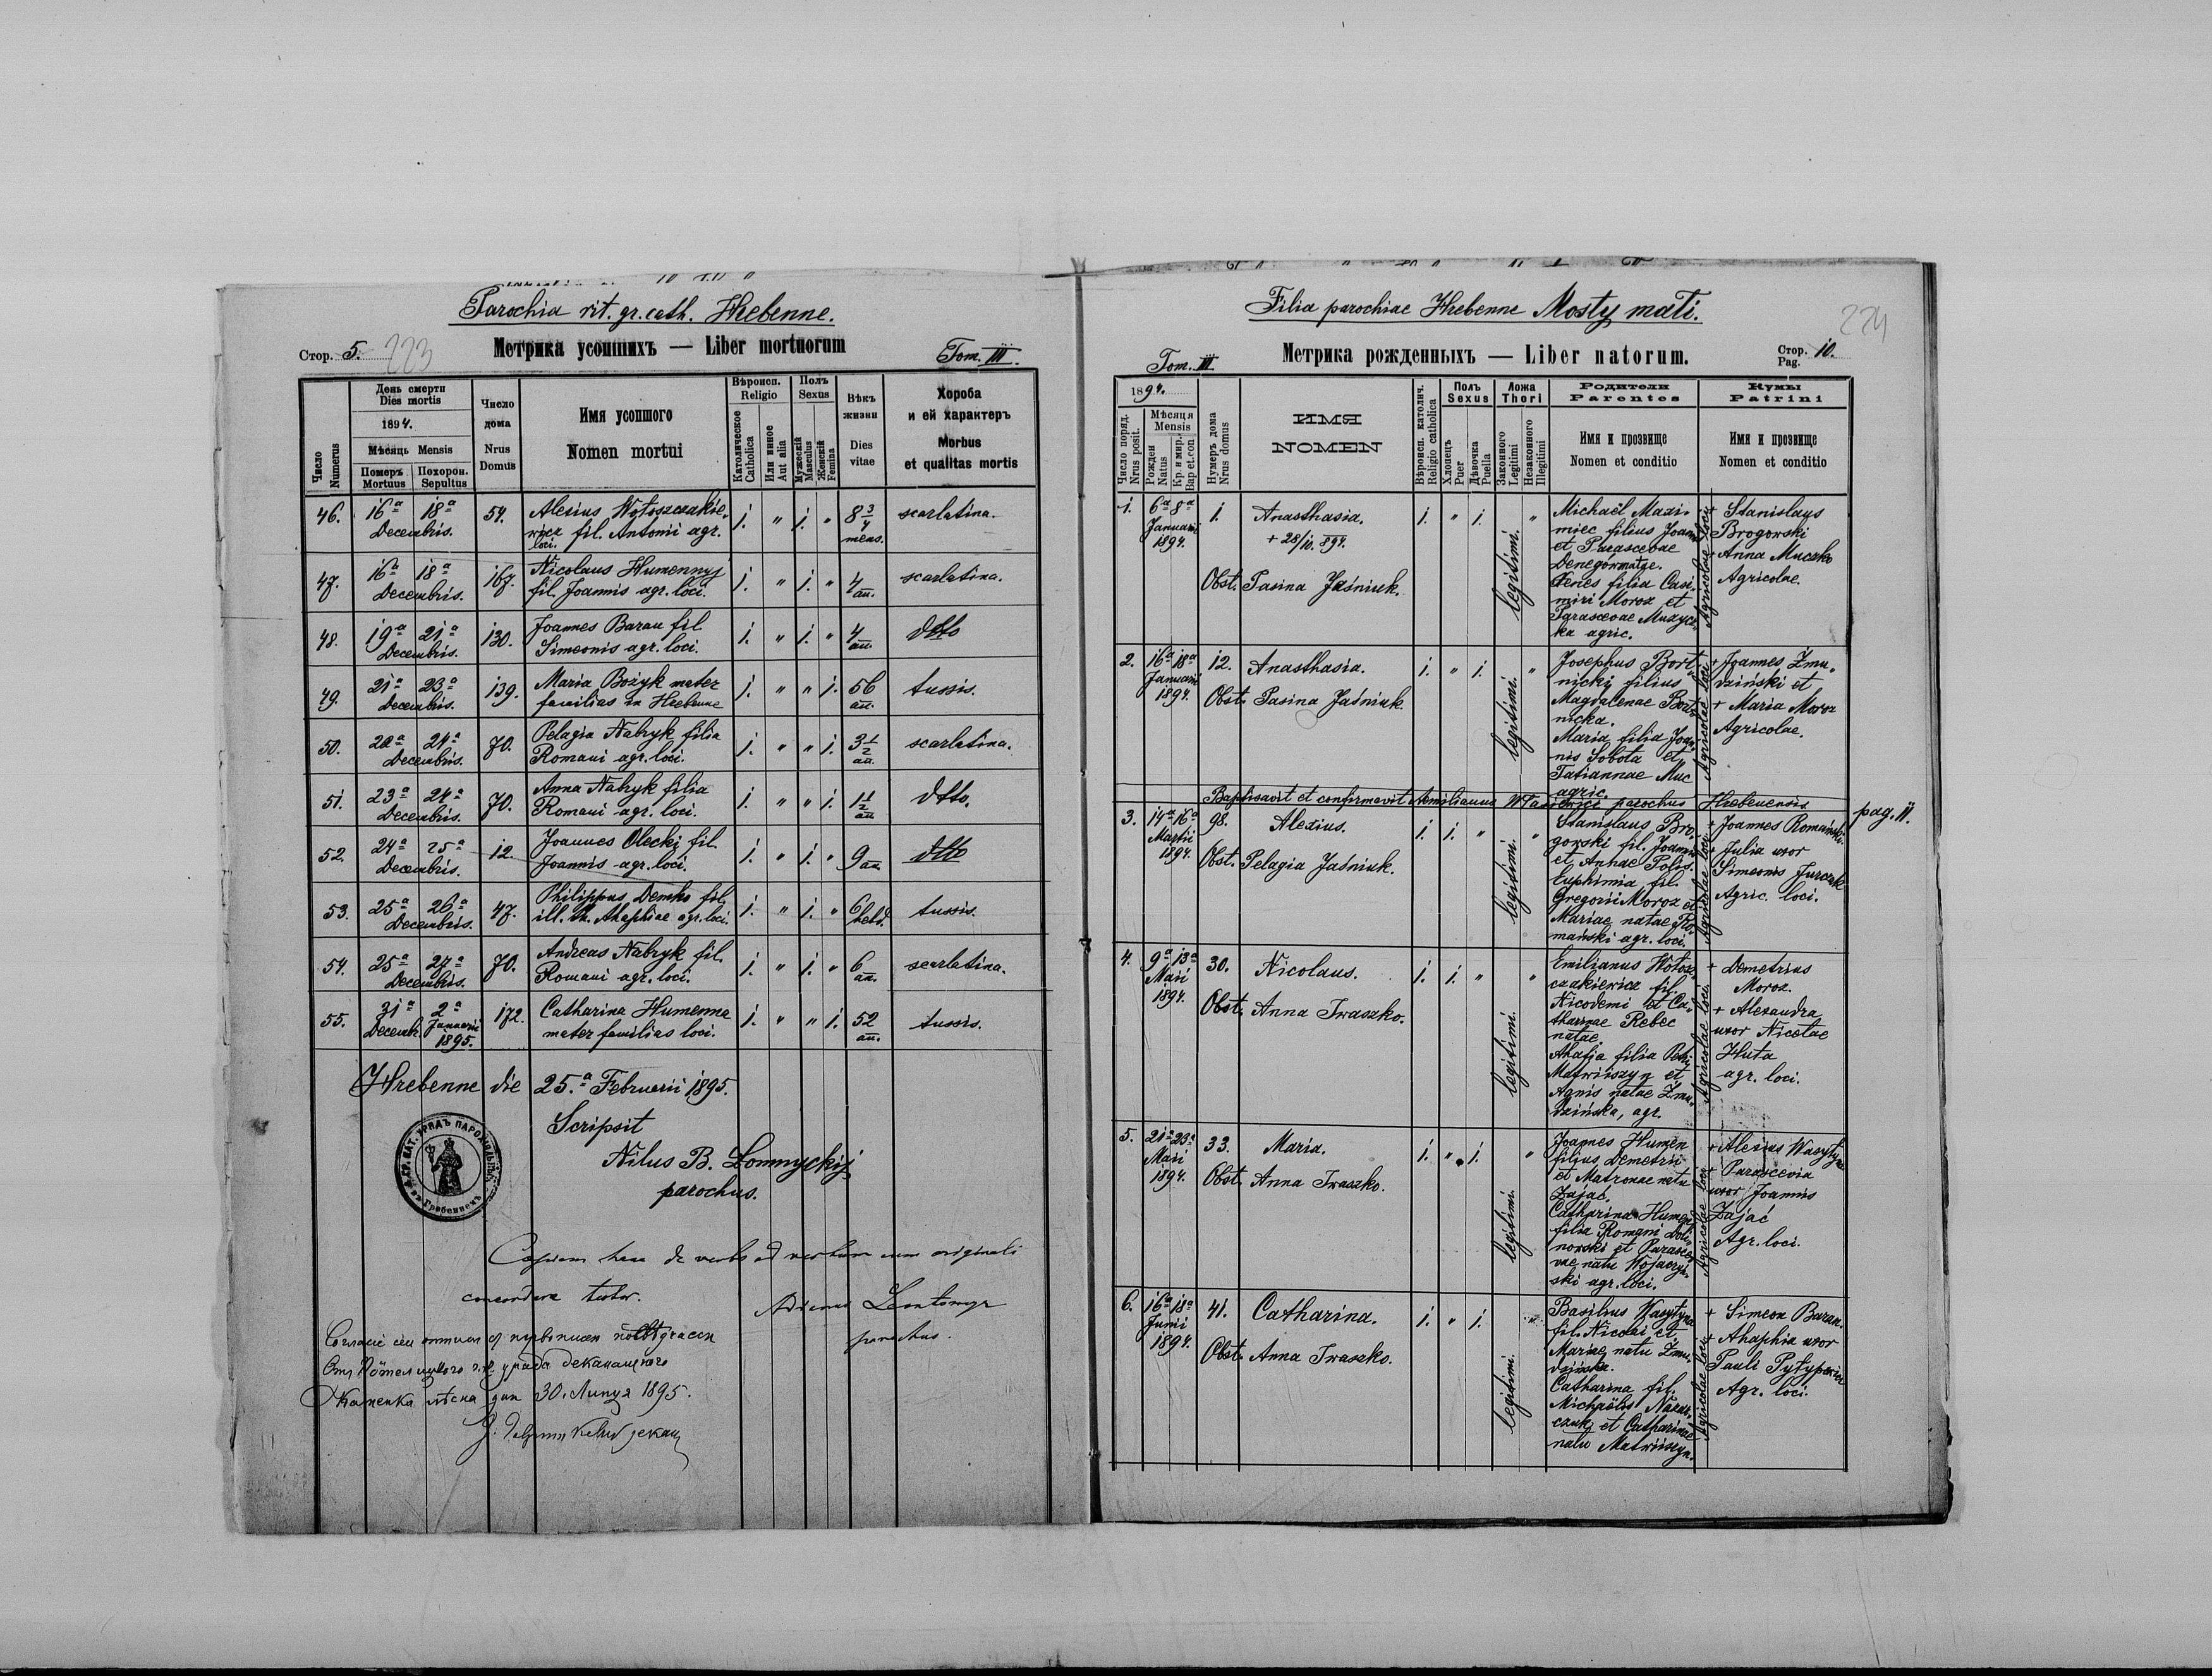 Parochia rit. gr. cath. Hrebenne.
Стор. 5. 223
Метрика усопшихъ — Liber mortuorum
Tom. III.
Число Numerus
День смерти
Dies mortis
1894.
Мѣсяць Mensis
Померъ Mortuus
Похорон. Sepultus
Число дома
Nrus Domus
Имя усопшого
Nomen mortui
Вѣроисп. Religio
Католическое Catholica
Или инное Aut alia
Полъ Sexus
Мужескій Masculus
Женскій Femina
Вѣкъ жизни
Dies vitae
Хороба
и ей характеръ
Morbus
et qualitas mortis
46. 16a 18a Decembris. 54. Alexius Wołoszczakie-
wicz fil. Antonii agr.
loci. 1. " 1. " 8 3/4 mens. scarlatina.
47. 16a 18a Decembris. 167. Nicolaus Humennyj
fil. Joannis agr. loci. 1. " 1. " 4 an. scarlatina.
48. 19a 21a Decembris. 130. Joannes Baran fil.
Simeonis agr. loci. 1. " 1. " 4 an. dtto
49. 21a 23a Decembris. 139. Maria Bożyk mater
familias in Hrebenne 1. " " 1. 56 an. tussis.
50. 22a 24a Decembris. 70. Pelagia Nabryk filia
Romani agr. loci. 1. " " 1. 3 1/2 an. scarlatina.
51. 23a 24a Decembris. 70. Anna Nabryk filia
Romani agr. loci. 1. " " 1. 1 1/2 an. dtto.
52. 24a 25a Decembris. 12. Joannes Olecki fil.
Joannis agr. loci. 1. " 1. " 9 an. dtto
53. 25a 26a Decembris. 47. Philippus Demko fil.
ill. th. Ahaphiae agr. loci. 1. " 1. " 6 hebd. tussis.
54. 25a 27a Decembris. 70. Andreas Nabryk fil.
Romani agr. loci. 1. " 1. " 6 an. scarlatina.
55. 31a Decemb. 2a Januarii 1895. 172. Catharina Humenna
mater familias loci. 1. " " 1. 52 an. tussis.
Hrebenne die 25.a Februarii 1895.
Scripsit
Nilus B. Łomnyckij
parochus.
Copiam hanc de verbo ad verbum cum originali
concordare testor.
parochus.
30. Липця 1895.
Filia parochiae Hrebenne Mosty małi.
224
Tom. III.
Метрика рожденныхъ — Liber natorum.
Стор. Pag. 10.
1894.
Число поряд. Nrus posit.
Мѣсяця Mensis
Рожден Natus
Кр. и мир. Bap. et. con.
Нумеръ дома Nrus domus
ИМЯ
NOMEN
Вѣроисп. католич. Religio catholica
Полъ Sexus
Хлопець Puer
Дѣвочка Puella
Ложа Thori
Законного Legitimi
Незаконного Illegitimi
Родители
Parentes
Имя и прозвище
Nomen et conditio
Кумы
Patrini
Имя и прозвище
Nomen et conditio
1. 6a 8a Januarii 1894. 1. Anasthasia.
+ 28/10. 894.
Obst. Pasina Jaśniuk.
1. " 1. legitimi. "
Michaël Maxi-
miec filius Joannis
et Parascevae
Denegórmatże.
Xenes filia Casi-
miri Moroz et
Parascevae Muzyc-
ka agric.
Agricolae loci
+ Stanislaus
Brogowski
+ Anna Muczko
Agricolae.
2. 16a 18a Januarii 1894. 12. Anasthasia.
Obst. Pasina Jaśniuk.
1. " 1. legitimi. "
Josephus Bort-
nickij filius
Magdalenae Bort-
nicka.
Maria filia Joan-
nis Sobota et
Tatiannae Muc
agric.
Agricolae loci
+ Joannes Zmu-
dziński et
+ Maria Moroz
Agricolae.
Baptisavit et confirmavit Aemilianus parochus Hrebenensis
pag. II.
3. 14a 16a Martii 1894. 98. Alexius.
Obst. Pelagia Jaśniuk.
1. 1. " legitimi. "
Stanislaus Bro-
gowski fil. Joannis
et Annae Polis.
Euphimia fil.
Gregorii Moroz et
Mariae natae Ro-
mański agr. loci.
Agricolae loci
+ Joannes Romański.
+ Julia uxor
Simeonis Jurczak
Agric. loci.
4. 9a 13a Maii 1894. 30. Nicolaus.
Obst. Anna Iwaszko.
1. 1. " legitimi. "
Emilianus Wołosz-
czakiewicz fil.
Nicodemi et Ca-
tharinae Rebec
natae.
Ahafia filia Petri
Matwiiszyn et
Agnis natae Zmu-
dzińska, agr.
Agricolae loci
+ Demetrius
Moroz.
+ Alexandra
uxor Nicolae
Huta
agr. loci.
5. 21a 23a Maii 1894. 33. Maria.
Obst. Anna Iwaszko.
1. " 1. legitimi. "
Joannes Humen
filius Demetrii
et Matronae natu
Zajac.
Catharina Humen
filia Romani Doli-
nowski et Parasce-
vae natu Wojaczyń-
ski agr. loci.
Agricolae loci
+ Alexius Wasyłyna
+ Parascevia
uxor Joannis
Zajać
Agr. loci.
6. 16a 18a Junii 1894. 41. Catharina.
Obst. Anna Iwaszko.
1. " 1. legitimi. "
Basilius Wasyłyna
fil. Nicolai et
Mariae natu Zmu-
dzińska.
Catharina fil.
Michaëlis Nazar-
czuk et Catharinae
natu Matwiiszyn.
Agricolae loci
+ Simeon Baran.
+ Ahaphia uxor
Pauli Pyłypowicz
Agr. loci.